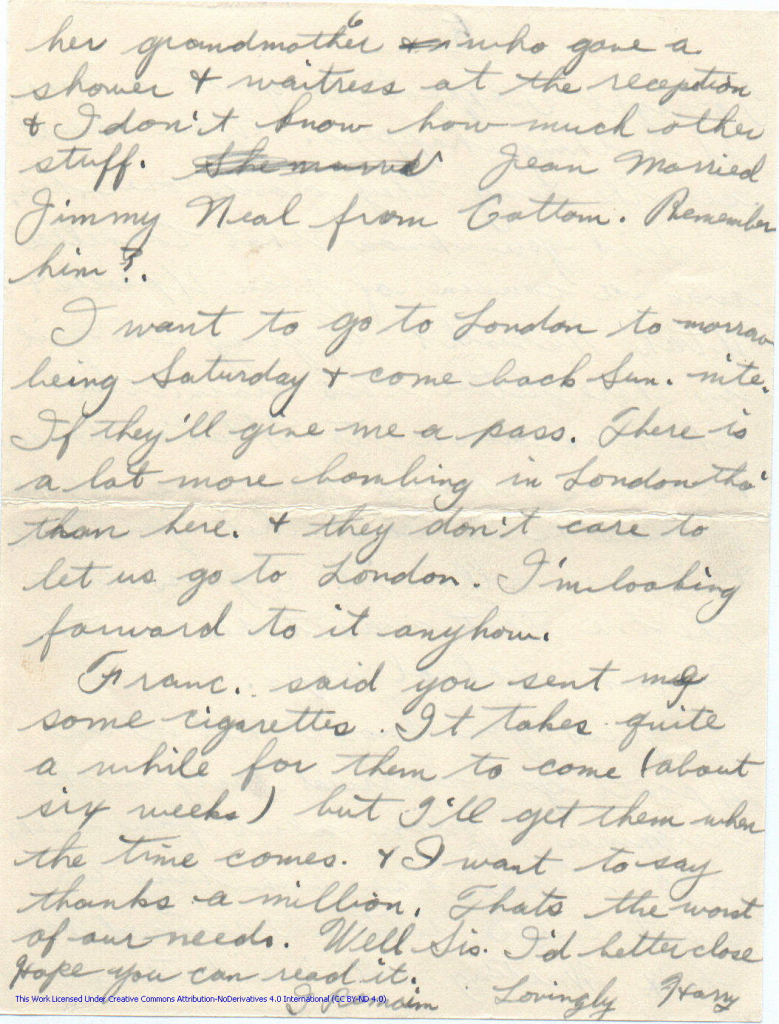 her grandmother who gave a
shower & waitress at the reception
& I don't know how much other
stuff. She married Jean Married
Jimmy Neal from Cottom. Remember
him?.
I want to go to London to morrow
being Saturday & come back Sun. nite.
If they'll give me a pass. There is
a lot more bombing in London tha
than here. & they don't care to
let us go to London. I'm looking
forward to it anyhow.
Franc. said you sent me
some cigarettes. It takes quite
a while for them to come (about
six weeks) but I'll get them when
the time comes. & I want to say
thanks a million. Thats the worst
of our needs. Well Sis. I'd better close
Hope you can read it.
I Remain Lovingly Harry
This Work Licensed Under Creative Commons Attribution-NoDerivatives 4.0 International (CC BY-ND 4.0)